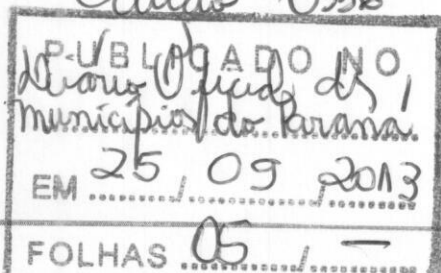 Edição
PUBLICADO NO
Diário Oficial ds
Municípios do Paraná
EM 25 / 09 / 2013
FOLHAS 05 / —